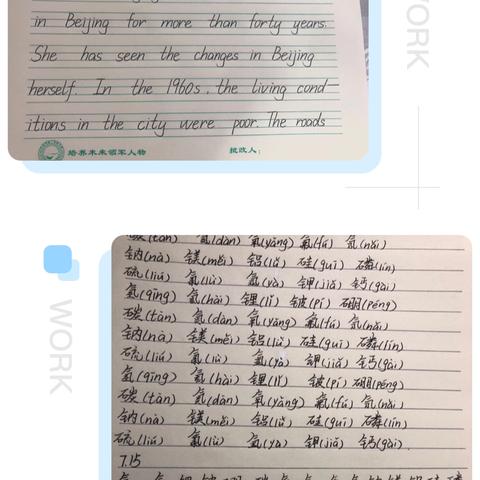 in Beijing for more than forty years.
She has seen the changes in Beijing
herself. In the 1960s, the living cond-
itions in the city were poor. The roads
培养未来领军人物 批改人：
WORK
WORK
碳(tàn) 氮(dàn) 氧(yǎng) 氟(fú) 氖(nǎi)
钠(nà) 镁(měi) 铝(lǚ) 硅(guī) 磷(lín)
硫(liú) 氯(lǜ) 氩(yà) 钾(jiǎ) 钙(gài)
氢(qīng) 氦(hài) 锂(lǐ) 铍(pí) 硼(péng)
碳(tàn) 氮(dàn) 氧(yǎng) 氟(fú) 氖(nǎi)
钠(nà) 镁(měi) 铝(lǚ) 硅(guī) 磷(lín)
硫(liú) 氯(lǜ) 氩(yà) 钾(jiǎ) 钙(gài)
氢(qīng) 氦(hài) 锂(lǐ) 铍(pí) 硼(péng)
碳(tàn) 氮(dàn) 氧(yǎng) 氟(fú) 氖(nǎi)
钠(nà) 镁(měi) 铝(lǚ) 硅(guī) 磷(lín)
硫(liú) 氯(lǜ) 氩(yà) 钾(jiǎ) 钙(gài)
7.15